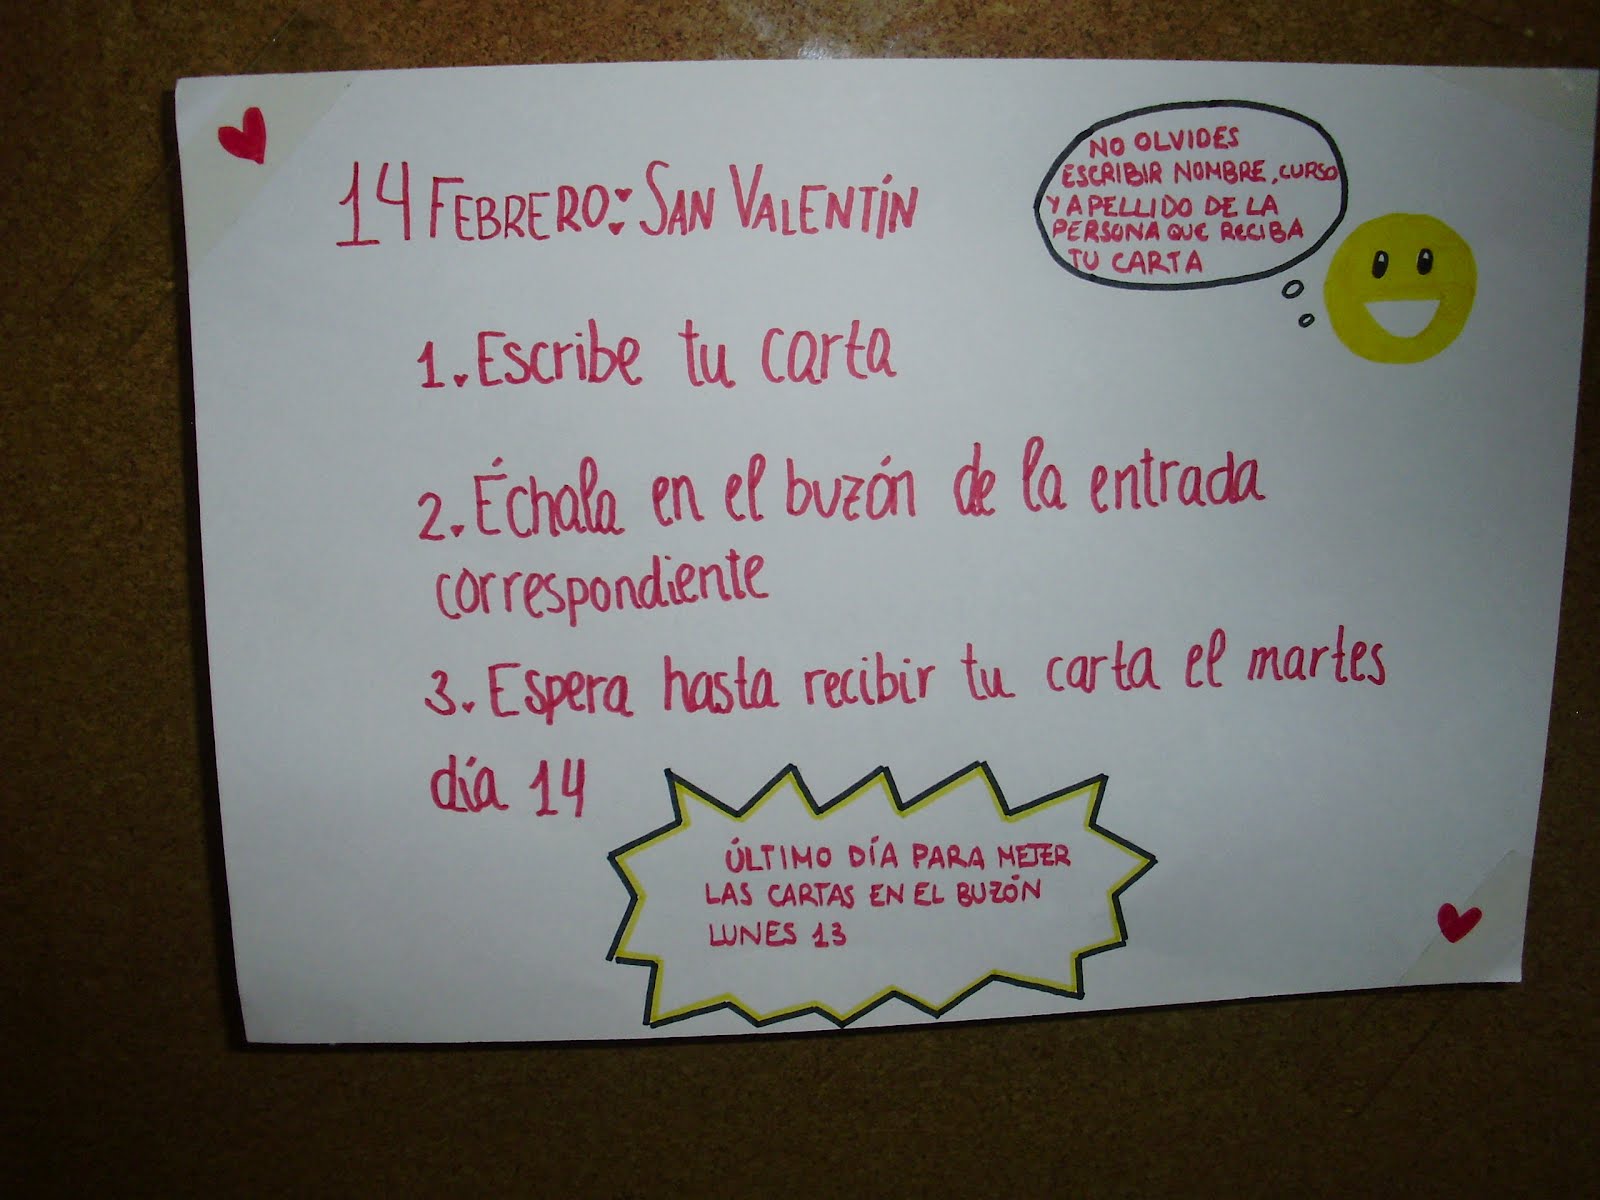 14 FEBRERO: SAN VALENTÍN
NO OLVIDES
ESCRIBIR NOMBRE, CURSO
Y APELLIDO DE LA
PERSONA QUE RECIBA
TU CARTA
1. Escribe tu carta
2. Échala en el buzón de la entrada
correspondiente
3. Espera hasta recibir tu carta el martes
día 14
ÚLTIMO DÍA PARA METER
LAS CARTAS EN EL BUZÓN
LUNES 13